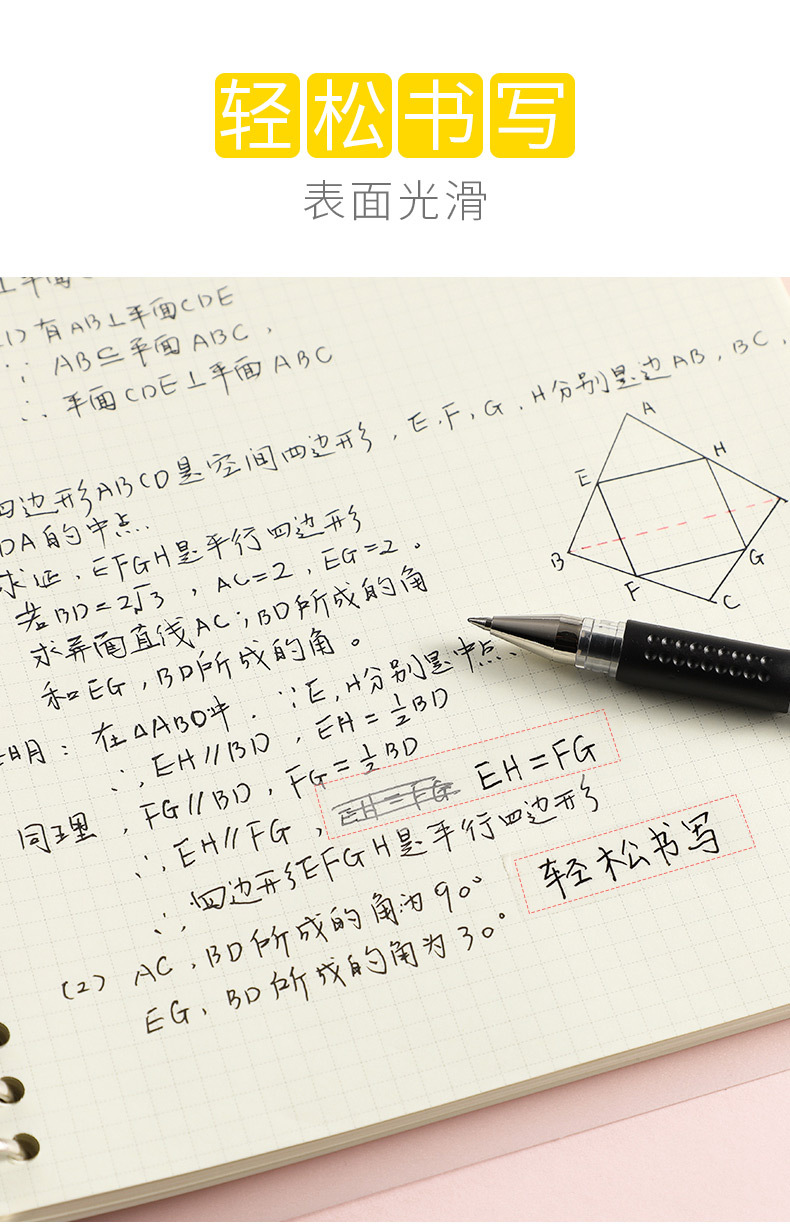 轻松书写
表面光滑
⊥平面
(1) 有AB⊥平面CDE
∵ AB⊆平面ABC,
∴ 平面CDE⊥平面ABC
四边形ABCD是空间四边形,E,F,G,H分别是边AB,BC,
DA的中点.
求证,EFGH是平行四边形
若BD=2√3,AC=2,EG=2.
求异面直线AC;BD所成的角
和EG,BD所成的角。
证明:在△ABD中.∵E,H分别是中点、
∴, EH∥BD,EH=½BD
同理,FG∥BD,FG=½BD
∴, EH∥FG,EH=FG EH=FG
∴, 四边形EFGH是平行四边形
轻松书写
(2) AC,BD所成的角为90°
EG,BD所成的角为30°
A
H
E
B
G
F
C